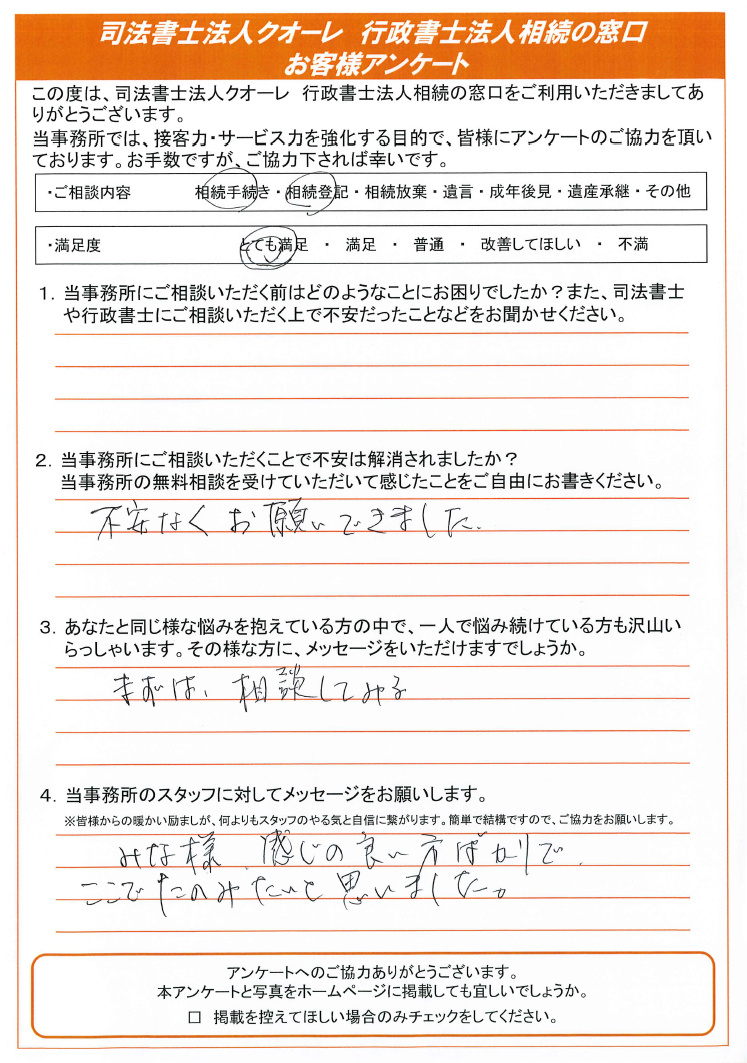 司法書士法人クオーレ　行政書士法人相続の窓口
お客様アンケート
この度は、司法書士法人クオーレ　行政書士法人相続の窓口をご利用いただきましてあ
りがとうございます。
当事務所では、接客力・サービス力を強化する目的で、皆様にアンケートのご協力を頂い
ております。お手数ですが、ご協力下されば幸いです。
・ご相談内容　相続手続き・相続登記・相続放棄・遺言・成年後見・遺産承継・その他
・満足度　とても満足　・　満足　・　普通　・　改善してほしい　・　不満
1．当事務所にご相談いただく前はどのようなことにお困りでしたか？また、司法書士
や行政書士にご相談いただく上で不安だったことなどをお聞かせください。
2．当事務所にご相談いただくことで不安は解消されましたか？
当事務所の無料相談を受けていただいて感じたことをご自由にお書きください。
不安なくお願いできました.
3．あなたと同じ様な悩みを抱えている方の中で、一人で悩み続けている方も沢山い
らっしゃいます。その様な方に、メッセージをいただけますでしょうか。
まずは、相談してみる
4．当事務所のスタッフに対してメッセージをお願いします。
※皆様からの暖かい励ましが、何よりもスタッフのやる気と自信に繋がります。簡単で結構ですので、ご協力をお願いします。
みな様、感じの良い方ばかりで、
ここでたのみたいと思いました。
アンケートへのご協力ありがとうございます。
本アンケートと写真をホームページに掲載しても宜しいでしょうか。
□ 掲載を控えてほしい場合のみチェックをしてください。